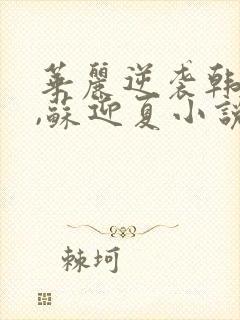 華麗逆袭韩
,蘇迎夏小說
棘坷